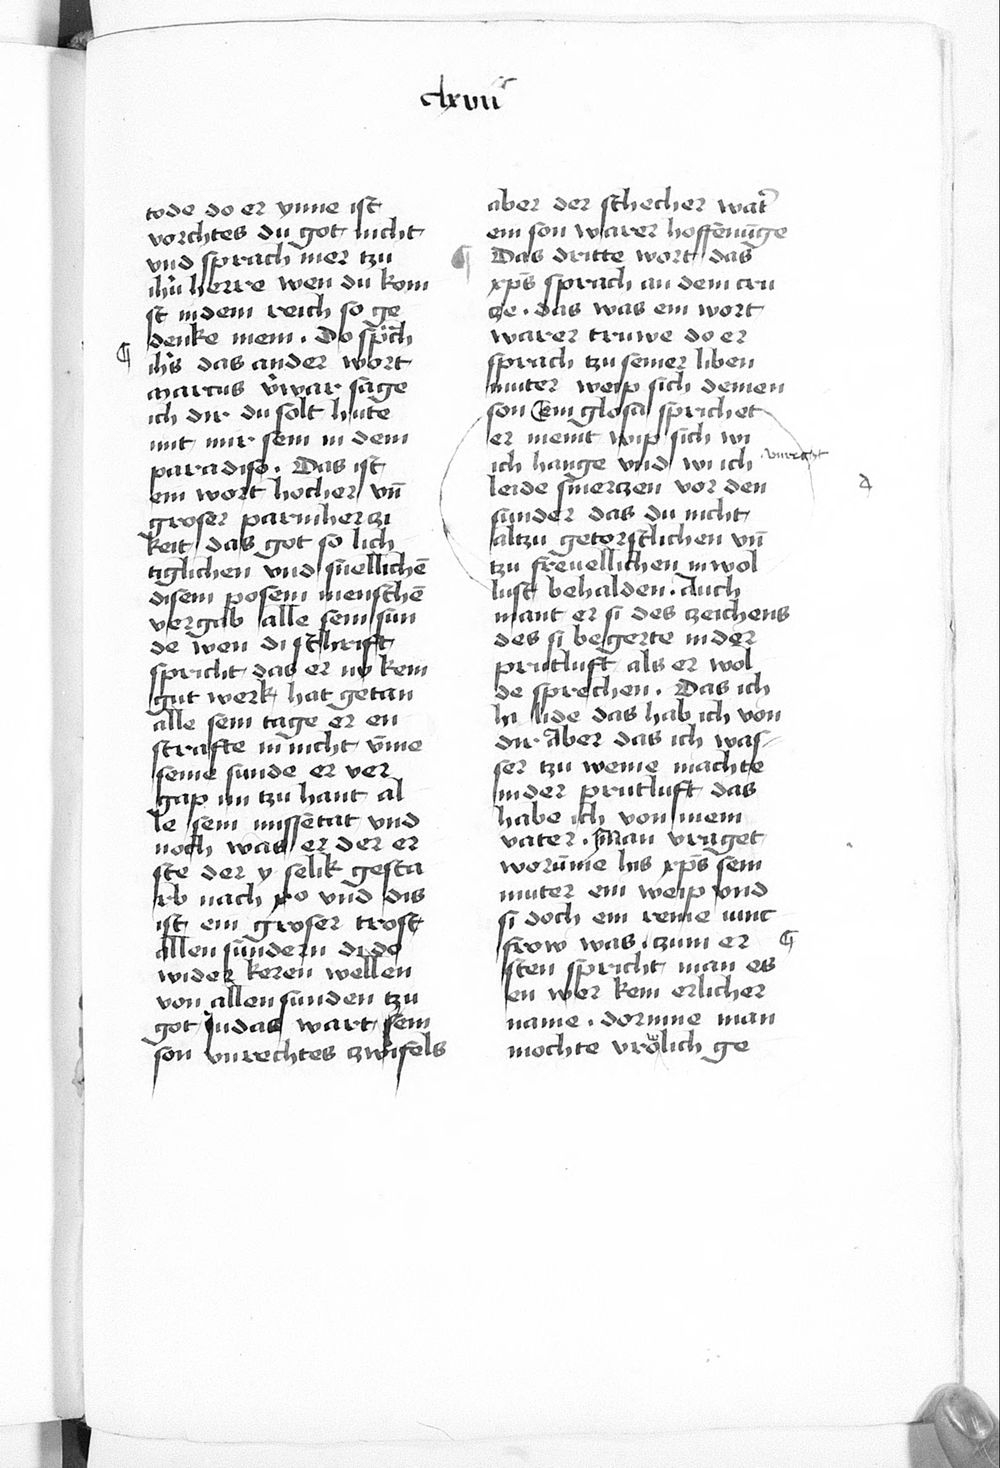 clxvii
tode do er ynne ist
vorchtes du got nicht
vnd sprach mer tzu
ihū herre wen du kom
st in dem reich so ge
denke mein . Do spͨch
¶ ihs̄ das ander wort
marcus v̄war sage
ich dir du solt hute
mit mir sein in dem
paradiso . Das ist
ein wort hocher vn̄
groser parmherczi
keit das got so lich
tiglichen vnd snellichē
disem posem menschē
vergab alle sein sun
de wen di schrift
spricht das er ny kein
gut werk hat getan
alle sein tage er en
strafte in nicht v̄me
seine sunde er ver
gap im tzu hant al
le sein missetat vnd
noch was er der er
ste der y selik gesta
rb nach xp̄o vnd dis
ist ein groser trost
allen sundern di do
wider keren wellen
von allen sunden tzu
got Judas wart sein
son vnrechtes zwifels
aber der schecher wart
ein son warer hoffenūge
¶ Das dritte wort das
xps̄ sprach an dem cru
cze . das was ein wort
warer truwe do er
sprach tzu seiner liben
muter weip sich deinen
son Ein glosa sprichet
er meint wip sich wi
ich hange vnd wi ich
vnrecht
leide smerczen vor den
sunder das du nicht
altzu getorstlichen vn̄
tzu freuellichen in wol
lust behalden . Auch
mant er si des czeichens
des si begerte in der
prutluft als er wol
de sprechen . Das ich
hi lide das hab ich von
dir Aber das ich was
ser tzu weine machte
in der prutluft das
habe ich von meim
vater . Man vraget
worūme his xps̄ sein
muter ein weip vnd
si doch ein reine iunc
frow was . zum er ¶
sten spricht man es
en wer kein erlicher
name . dorinne man
mochte vrölich ge